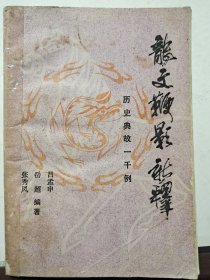 龍文鞭影新
历史典故一千例
吕孟申
岳超 编著
张秀风